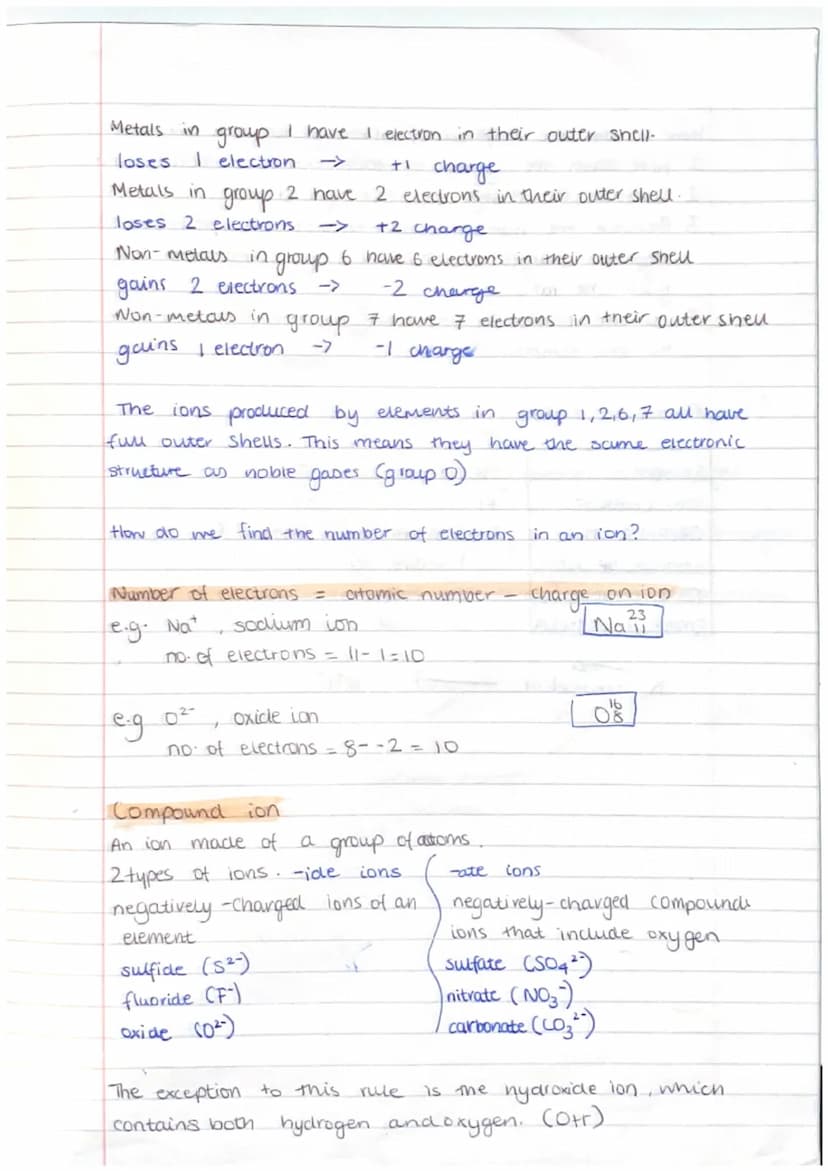 Metals in group 1 have 1 electron in their outer shell.
loses 1 electron -> +1 charge
Metals in group 2 have 2 electrons in their outer shell.
loses 2 electrons -> +2 charge
Non-metals in group 6 have 6 electrons in their outer shell
gains 2 electrons -> -2 charge
Non-metals in group 7 have 7 electrons in their outer shell
gains 1 electron -> -1 charge
The ions produced by elements in group 1,2,6,7 all have
full outer shells. This means they have the same electronic
structure as noble gases (group 0)
How do we find the number of electrons in an ion?
Number of electrons = atomic number - charge on ion
e.g. Na⁺, sodium ion Na ²³₁₁
no. of electrons = 11-1=10
e.g O²⁻, oxide ion O ¹⁶₈
no. of electrons = 8--2 = 10
Compound ion
An ion made of a group of atoms.
2 types of ions. -ide ions -ate ions
negatively-charged ions of an negatively-charged compound
element ions that include oxygen
sulfide (S²⁻) sulfate (SO₄²⁻)
fluoride (F⁻) nitrate (NO₃⁻)
oxide (O²⁻) carbonate (CO₃²⁻)
The exception to this rule is the hydroxide ion, which
contains both hydrogen and oxygen. (OH⁻)